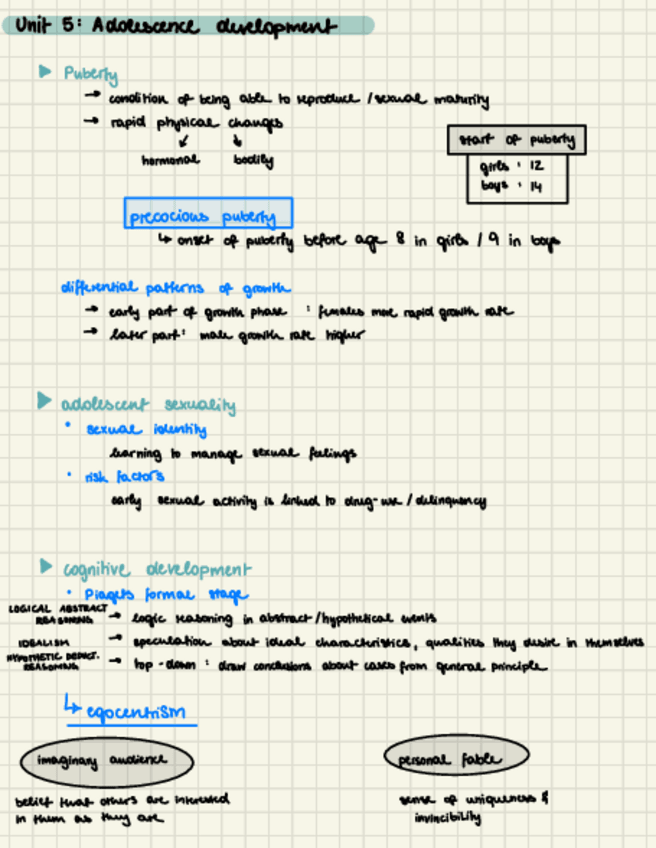 Unit 5: Adolescence development
Puberty
→ condition of being able to reproduce / sexual maturity
→ rapid physical changes
hormonal bodily
start of puberty
girls : 12
boys : 14
precocious puberty
↳ onset of puberty before age 8 in girls / 9 in boys
differential patterns of growth
→ early part of growth phase : females more rapid growth rate
→ later part: male growth rate higher
adolescent sexuality
• sexual identity
learning to manage sexual feelings
• risk factors
early sexual activity is linked to drug-use / delinquency
cognitive development
• Piagets formal stage
LOGICAL ABSTRACT REASONING → logic reasoning in abstract/hypothetical events
IDEALISM → speculation about ideal characteristics, qualities they desire in themselves
HYPOTHETIC DEDUCT. REASONING → top-down : draw conclusions about cases from general principle
↳ egocentrism
imaginary audience
belief that others are interested
in them as they are
personal fable
sense of uniqueness &
invincibility